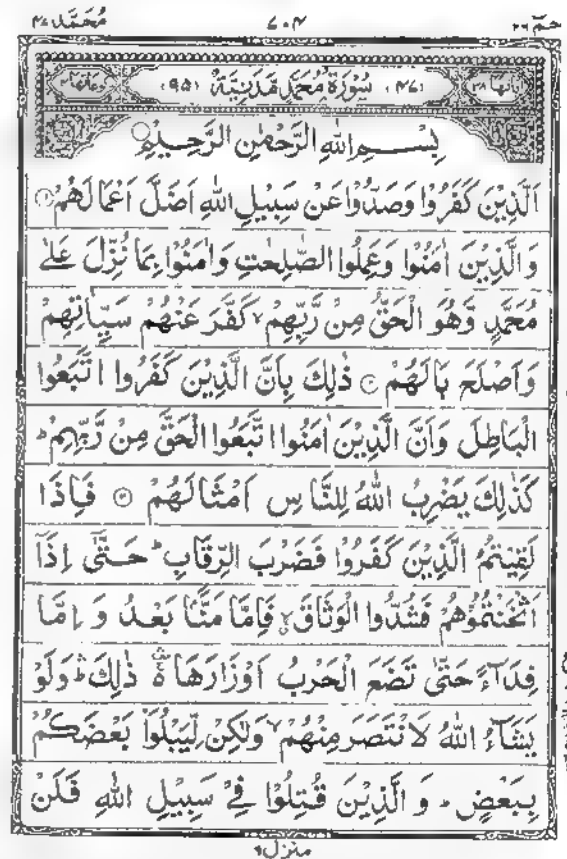 حٰمٓ ۲۶ ۷۰۴ مُحَمَّد ۴۷
اٰیَاتُهَا ۳۸ (۴۷) سُوْرَةُ مُحَمَّدٍ مَّدَنِیَّةٌ (۹۵) رُكُوْعَاتُهَا ۴
بِسْمِ اللهِ الرَّحْمٰنِ الرَّحِیْمِ
اَلَّذِیْنَ كَفَرُوْا وَصَدُّوْا عَنْ سَبِیْلِ اللهِ اَضَلَّ اَعْمَالَهُمْ ۱
وَالَّذِیْنَ اٰمَنُوْا وَعَمِلُوا الصّٰلِحٰتِ وَاٰمَنُوْا بِمَا نُزِّلَ عَلٰی
مُحَمَّدٍ وَّهُوَ الْحَقُّ مِنْ رَّبِّهِمْ ۙ كَفَّرَ عَنْهُمْ سَیِّاٰتِهِمْ
وَاَصْلَحَ بَالَهُمْ ۲ ذٰلِكَ بِاَنَّ الَّذِیْنَ كَفَرُوا اتَّبَعُوا
الْبَاطِلَ وَاَنَّ الَّذِیْنَ اٰمَنُوا اتَّبَعُوا الْحَقَّ مِنْ رَّبِّهِمْ ؕ
كَذٰلِكَ یَضْرِبُ اللهُ لِلنَّاسِ اَمْثَالَهُمْ ۳ فَاِذَا
لَقِیْتُمُ الَّذِیْنَ كَفَرُوْا فَضَرْبَ الرِّقَابِ ؕ حَتّٰۤی اِذَاۤ
اَثْخَنْتُمُوْهُمْ فَشُدُّوا الْوَثَاقَ ۙ فَاِمَّا مَنًّۢا بَعْدُ وَاِمَّا
فِدَآءً حَتّٰی تَضَعَ الْحَرْبُ اَوْزَارَهَا ۛ۬ ذٰلِكَ ۛؕ وَلَوْ
یَشَآءُ اللهُ لَانْتَصَرَ مِنْهُمْ ۙ وَلٰكِنْ لِّیَبْلُوَا۠ بَعْضَكُمْ
بِبَعْضٍ ؕ وَالَّذِیْنَ قُتِلُوْا فِیْ سَبِیْلِ اللهِ فَلَنْ
منزل۶